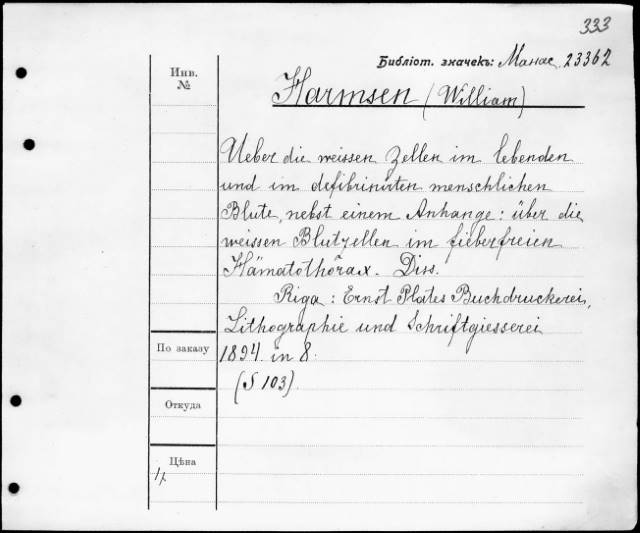 333
Библіот. значекъ: Манас 23362
Инв.
№
Harmsen (William)
Ueber die weissen Zellen im lebenden
und im defibrinirten menschlichen
Blute, nebst einem Anhange: über die
weissen Blutzellen im fieberfreien
Hämatothôrax. Diss.
Riga: Ernst Plates Buchdruckerei,
Lithographie und Schriftgiesserei
По заказу
1894. in 8.
(S 103).
Откуда
Цѣна